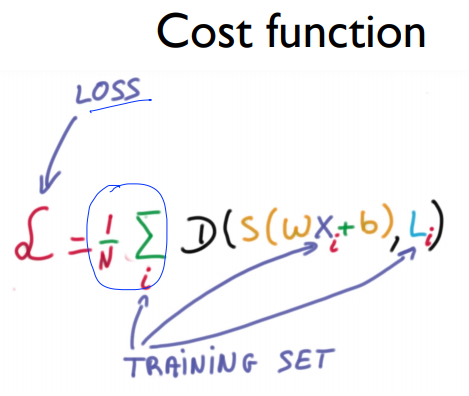 Cost function
LOSS
ℒ = 1/N Σ_i D(S(wx_i+b), L_i)
TRAINING SET